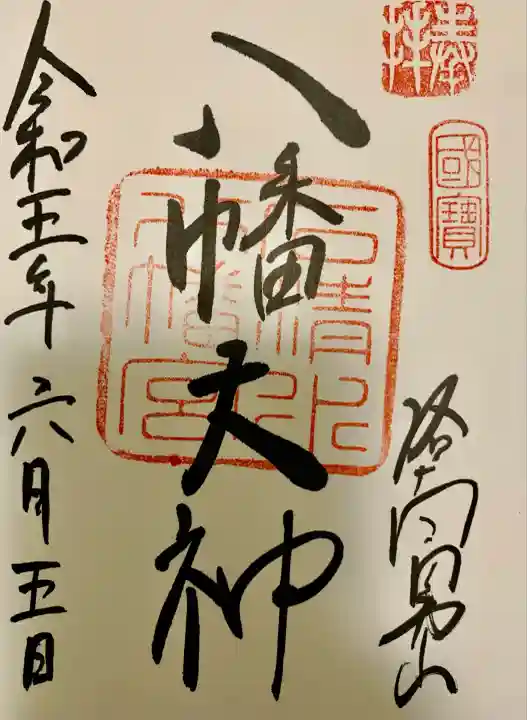 奉拝
國寶
洛南男山
八幡大神
石清水
八幡宮
令和五年六月五日